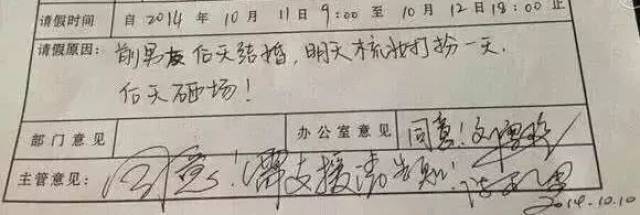 请假时间 自 2014 年 10 月 11 日 9:00 至 10 月 12 日 18:00 止
请假原因: 前男友后天结婚,明天梳妆打扮一天.
后天砸场!
部门意见 办公室意见 同意!
主管意见: 同意!需支援请告知!
2014.10.10